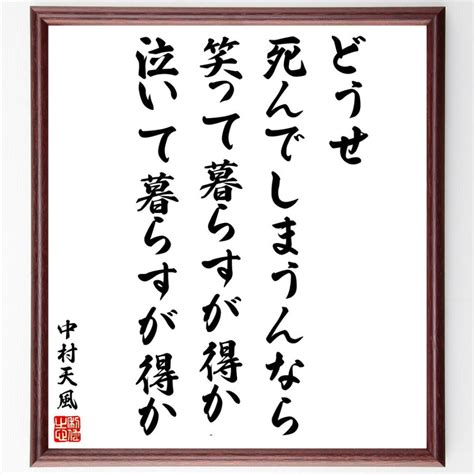 どうせ
死んでしまうんなら
笑って暮らすが得か
泣いて暮らすが得か
中村天風